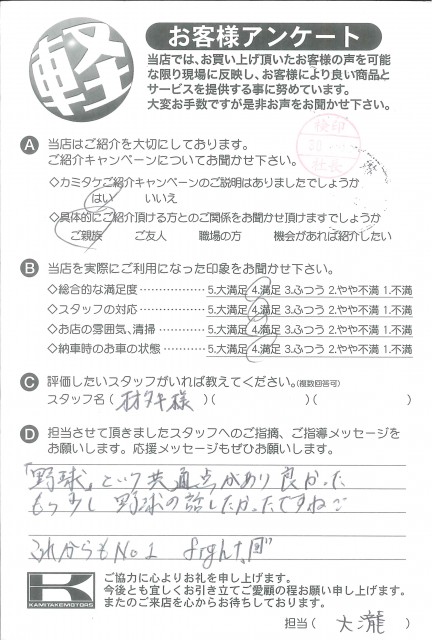 軽
お客様アンケート
当店では、お買い上げ頂いたお客様の声を可能
な限り現場に反映し、お客様により良い商品と
サービスを提供する事に努めています。
大変お手数ですが是非お声をお聞かせ下さい。
検印
社長
A 当店はご紹介を大切にしております。
ご紹介キャンペーンについてお聞かせ下さい。
◇カミタケご紹介キャンペーンのご説明はありましたでしょうか
はい いいえ
◇具体的にご紹介頂ける方とのご関係をお聞かせ頂けますでしょうか
ご親族 ご友人 職場の方 機会があれば紹介したい
B 当店を実際にご利用になった印象をお聞かせ下さい。
◇総合的な満足度 ‥‥‥‥‥ 5.大満足 4.満足 3.ふつう 2.やや不満 1.不満
◇スタッフの対応 ‥‥‥‥‥ 5.大満足 4.満足 3.ふつう 2.やや不満 1.不満
◇お店の雰囲気、清掃 ‥‥‥ 5.大満足 4.満足 3.ふつう 2.やや不満 1.不満
◇納車時のお車の状態 ‥‥‥ 5.大満足 4.満足 3.ふつう 2.やや不満 1.不満
C 評価したいスタッフがいれば教えてください。(複数回答可)
スタッフ名( 様 )( )( )
D 担当させて頂きましたスタッフへのご指摘、ご指導メッセージを
お願いします。応援メッセージもぜひお願いします。
「野球」という共通点があり良かった
もう少し野球の話したかったですね。
これからもNo1
K
KAMITAKEMOTORS
ご協力に心よりお礼を申し上げます。
今後とも宜しくお引き立てご愛顧の程お願い申し上げます。
またのご来店を心からお待ちしております。
担当( 大瀧 )